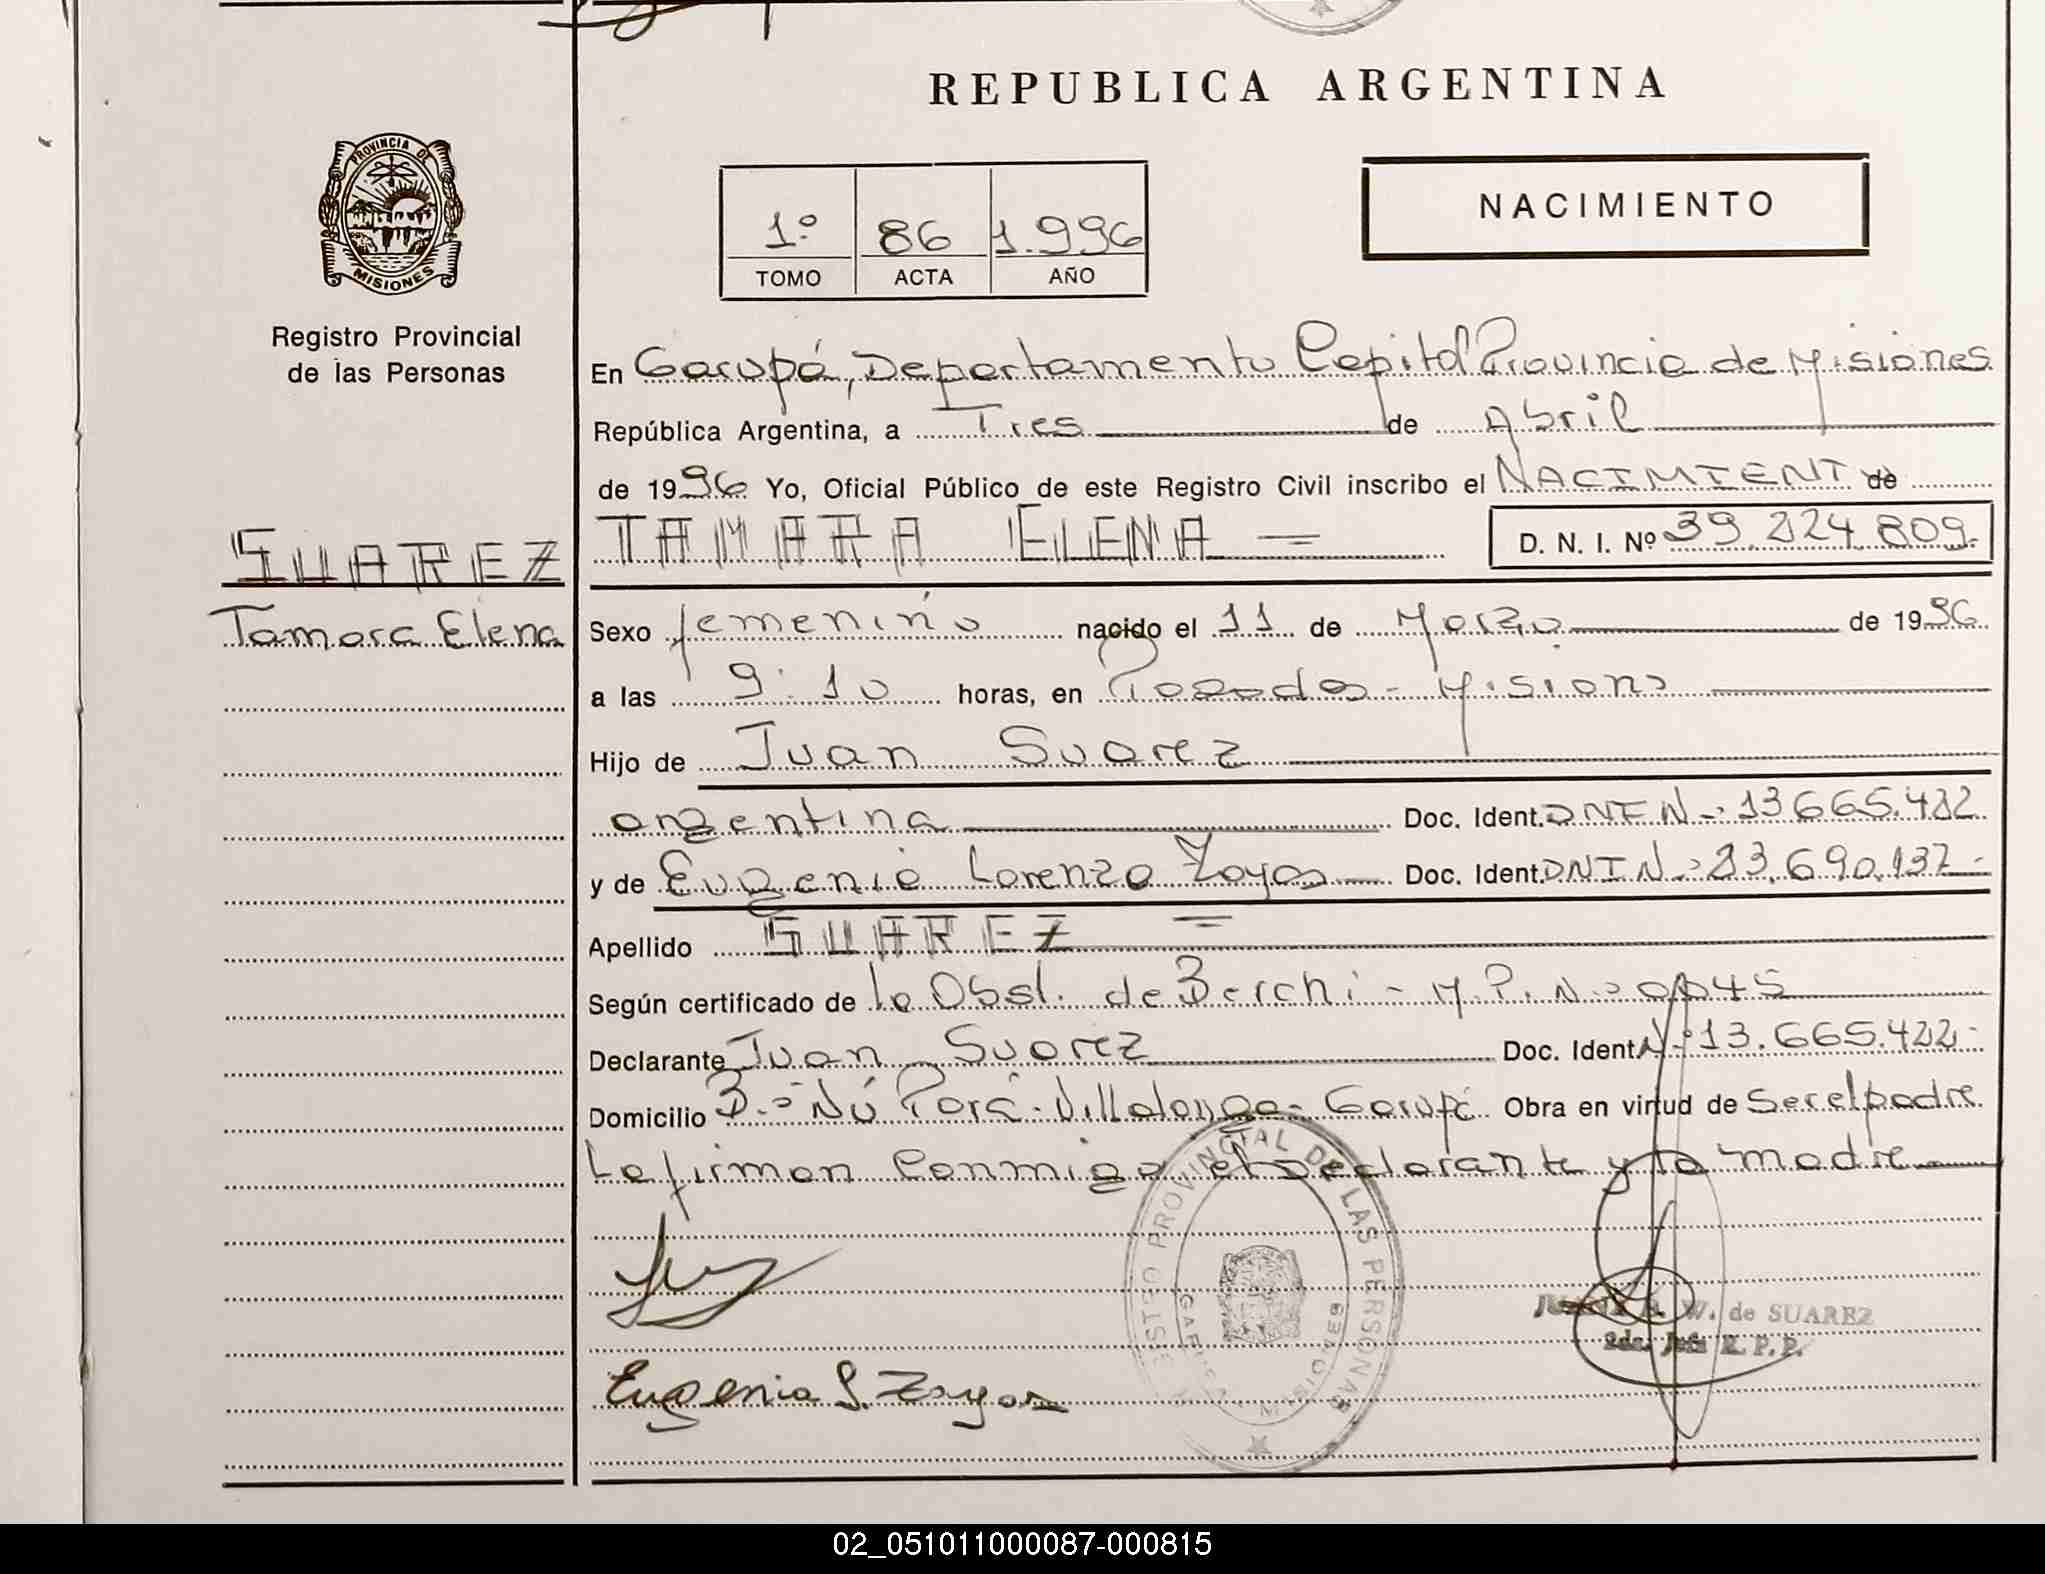 REPUBLICA ARGENTINA
PROVINCIA DE
MISIONES
Registro Provincial
de las Personas
NACIMIENTO
1º 86 1.996
TOMO ACTA AÑO
En Garupá, Departamento Capital Provincia de Misiones
República Argentina, a Tres de Abril
de 1996 Yo, Oficial Público de este Registro Civil inscribo el NACIMIENTO de
SUAREZ
Tamara Elena
TAMARA ELENA = D. N. I. Nº 39.224.809.
Sexo femenino nacido el 11 de Marzo de 1996.
a las 9:10 horas, en Posadas - Misiones
Hijo de Juan Suarez
argentina Doc. Ident. DNI Nº 13665.422
y de Eugenia Lorenza Zayas Doc. Ident. DNI Nº 23.690.137
Apellido SUAREZ =
Según certificado de la Obst. de Berchi - M.P.Nº 0045
Declarante Juan Suarez Doc. Ident. Nº 13.665.422
Domicilio B.º Ñú Porá - Villalonga - Garupá Obra en virtud de Ser el padre
La firman Conmigo el Declarante y la madre
REGISTRO PROVINCIAL DE LAS PERSONAS
GARUPA MISIONES
W. de SUAREZ
2da. Jefa R. P. P.
Eugenia L. Zayas
02_051011000087-000815